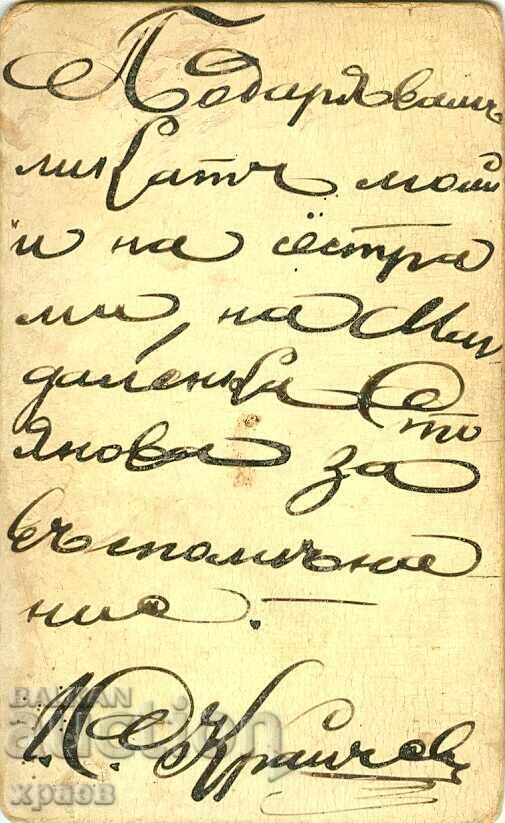 Подарявамъ
ликатъ мой
и на сестра
ми, на Ми
даленка Сто
янова за
въспомѣна
ние.—
Н. С. Крайчев
BALKAN
auction
храов